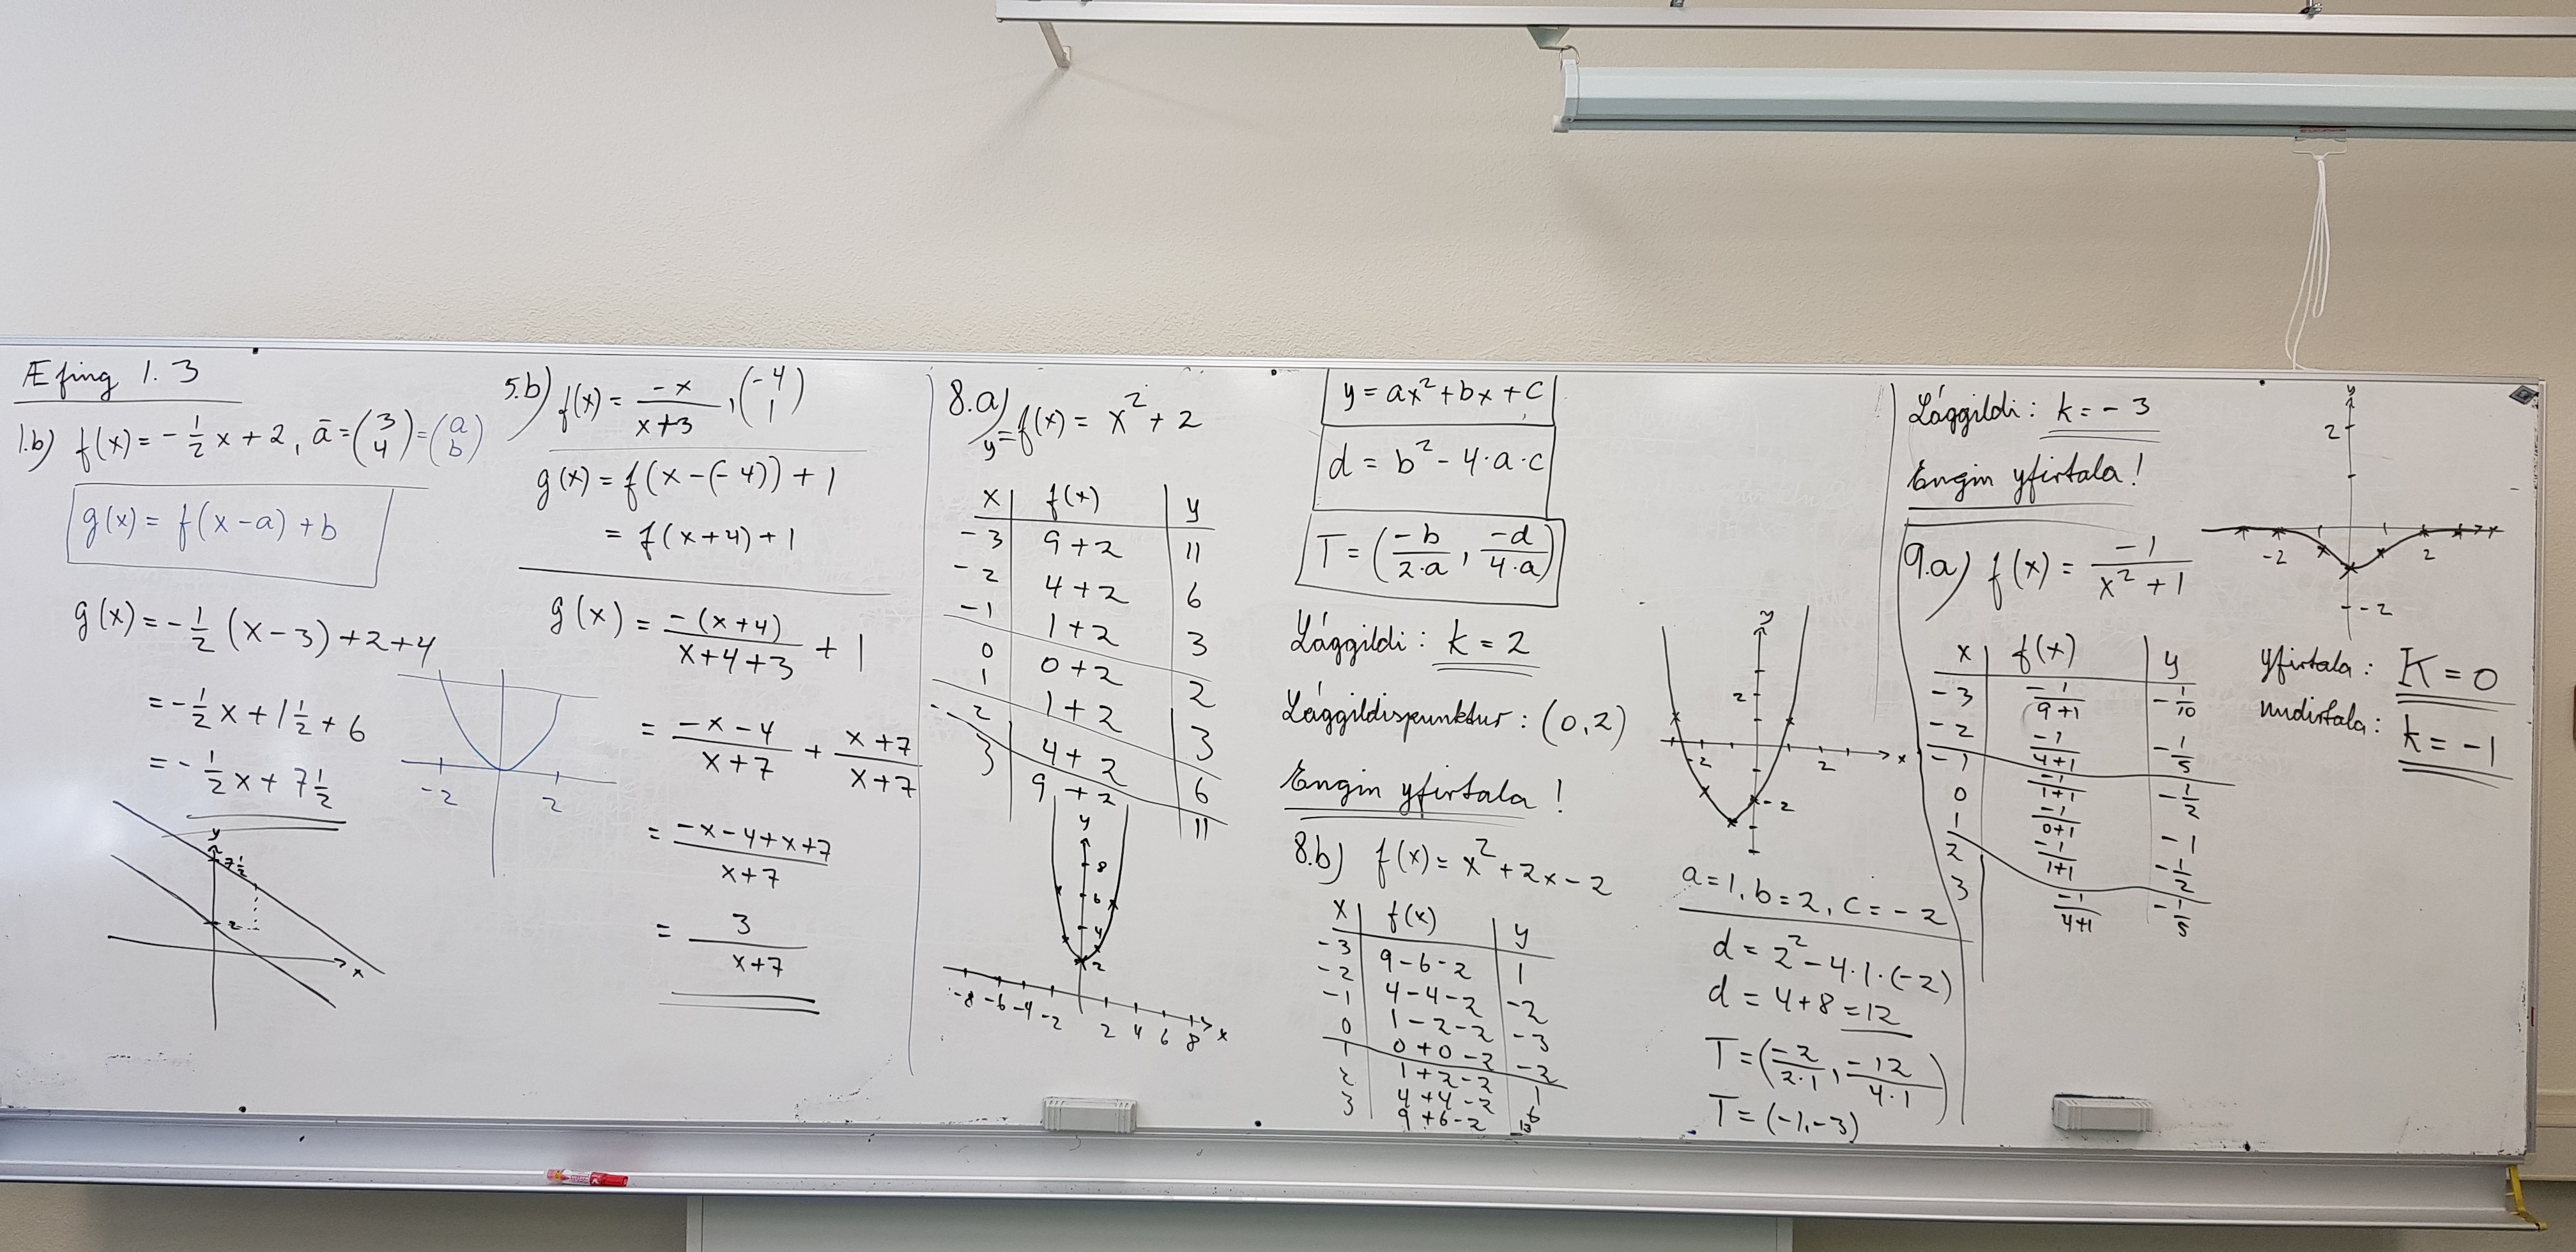 Æfing 1.3
1.b) f(x) = -1/2 x + 2, ā = (3 4) = (a b)
g(x) = f(x-a) + b
g(x) = -1/2 (x-3) + 2 + 4
= -1/2 x + 1 1/2 + 6
= -1/2 x + 7 1/2
y
7 1/2
2
x
-2 2
5.b) f(x) = -x/(x+3), (-4 1)
g(x) = f(x-(-4)) + 1
= f(x+4) + 1
g(x) = -(x+4)/(x+4+3) + 1
= (-x-4)/(x+7) + (x+7)/(x+7)
= (-x-4+x+7)/(x+7)
= 3/(x+7)
8.a) y = f(x) = x² + 2
x f(x) y
-3 9+2 11
-2 4+2 6
-1 1+2 3
0 0+2 2
1 1+2 3
2 4+2 6
3 9+2 11
y
8
6
4
2
-8 -6 -4 -2 2 4 6 8 x
y = ax² + bx + c
d = b² - 4·a·c
T = (-b/(2·a), -d/(4·a))
Lággildi: k = 2
Lággildispunktur: (0,2)
Engin yfirtala!
8.b) f(x) = x² + 2x - 2
x f(x) y
-3 9-6-2 1
-2 4-4-2 -2
-1 1-2-2 -3
0 0+0-2 -2
1 1+2-2 1
2 4+4-2 6
3 9+6-2 13
y
2
-2 2 x
-2
a=1, b=2, c=-2
d = 2² - 4·1·(-2)
d = 4+8 = 12
T = (-2/(2·1), -12/(4·1))
T = (-1,-3)
Lággildi: k = -3
Engin yfirtala!
9.a) f(x) = -1/(x²+1)
x f(x) y
-3 -1/(9+1) -1/10
-2 -1/(4+1) -1/5
-1 -1/(1+1) -1/2
0 -1/(0+1) -1
1 -1/(1+1) -1/2
2 -1/(4+1) -1/5
3
y
2
-2 2 x
-2
yfirtala: K = 0
undirtala: k = -1